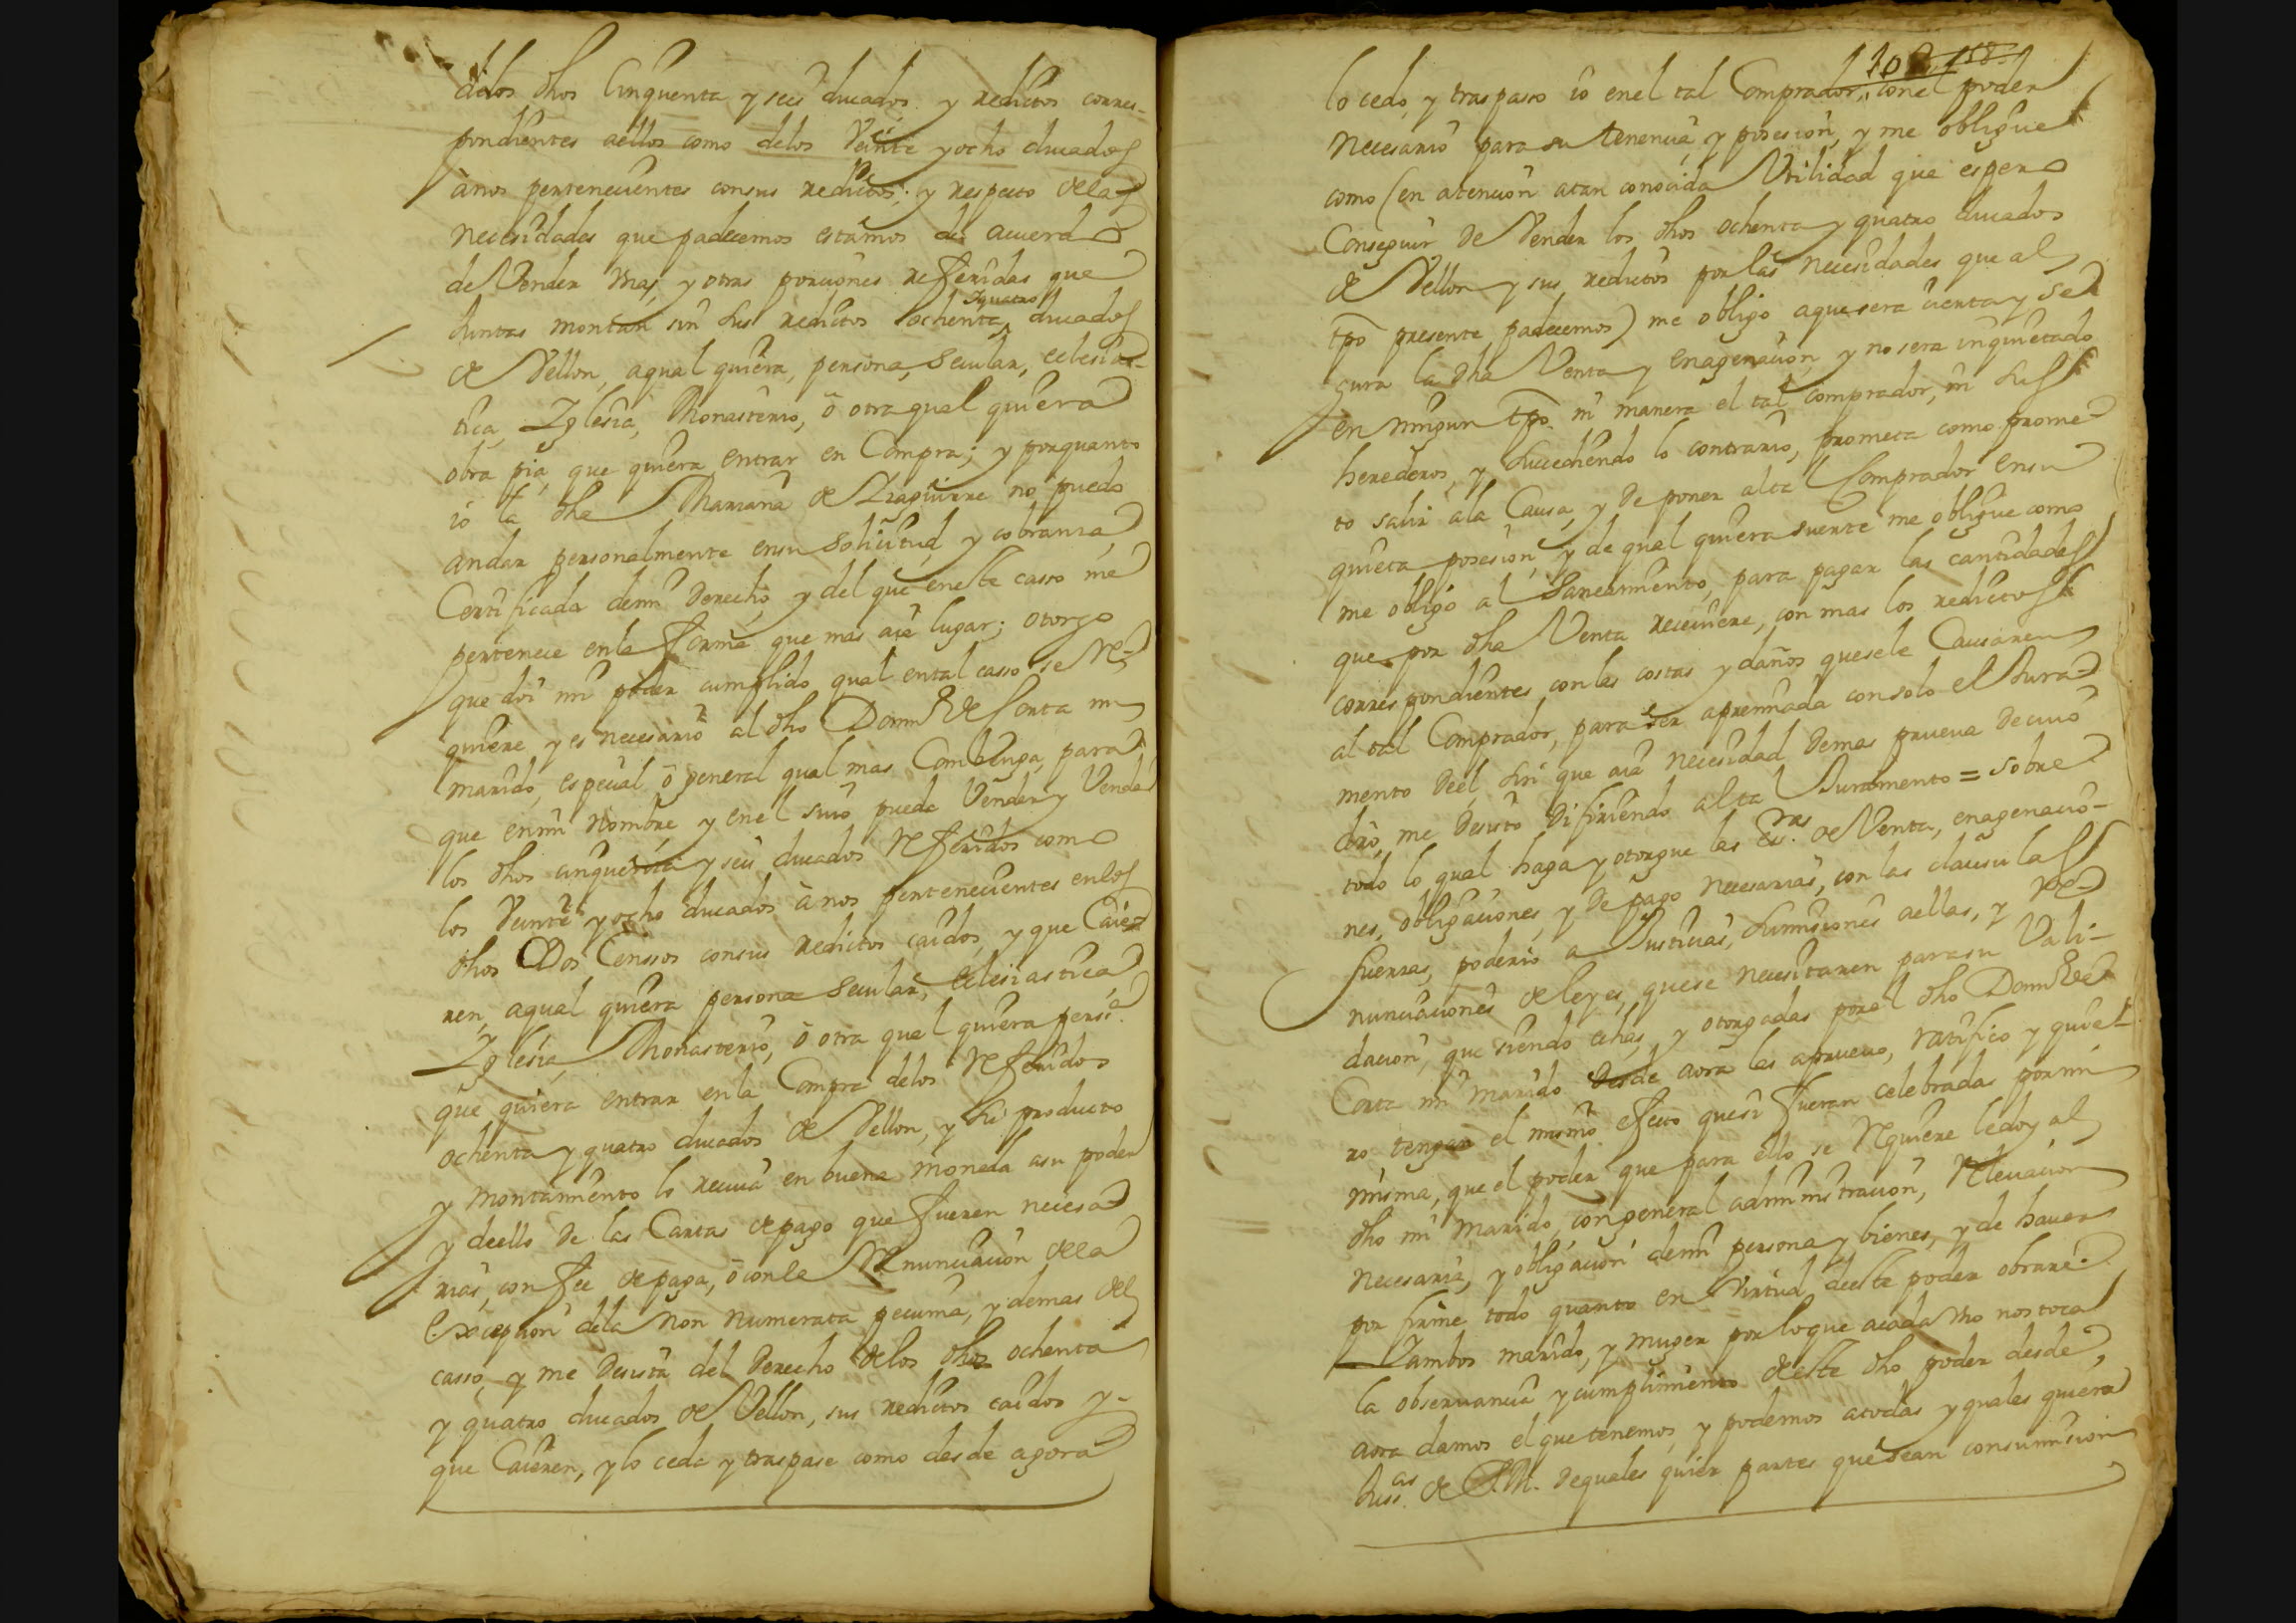 delos dhos Cinquenta y seis ducados y redictos corres-
pondientes aellos como delos Veinte yocho ducados
ànos pertenecientes consus redictos; y respecto delas
necesidades que padecemos estamos de acuerdo
de Vender unas y otras porciones referidas que
Juntas montan sin sus redictos ochenta yquatro ducados
de Vellon, aqual quiera, persona, secular, eclesias-
tica, Iglesia, Monasterio, ò otraqual quiera
obra pia, que quiera entrar en Compra; y porquanto
io la dha Mariana de Aiaguirre no puedo
andar personalmente ensu solicitud, y cobranza,
Certificada demi derecho, y del que eneste casso me
pertenece enla forma que mas aia lugar; otorgo
que doi mi poder cumplido qual ental casso se re-
quiere, y es necesario al dho Domingo de Corta mi
marido, especial ò general qual mas Combenga, para
que enmi nombre, y enel suio pueda Vender, y Venda
los dhos cinquenta y seis ducados referidos como
los Veinte yocho ducados ànos pertenecientes enlos
dhos Dos Censsos consus redictos caidos, y que Caie-
ren, aqual quiera persona secular, eclesiastica,
Iglesia, Monasterio, ò otra qual quiera perssa.
que quiera entrar enla Compra delos referidos
ochenta y quatro ducados de Vellon, y su producto
y montamiento lo reciva en buena moneda asu poder
y deello de las Cartas depago que fueren necesa-
rias, con fee depaga, ò conla renunciacion dela
excepcion dela non numerata pecunia, y demas del
casso, y me desista del derecho delos dhos ochenta
y quatro ducados de Vellon, sus redictos caidos y-
que Caieren, ylo ceda ytraspase como desde agora
lo cedo, y traspasso io enel tal Comprador, conel poder
necesario para su tenencia, y posesion, y me obligue
como (en atencion atan conocida Utilidad que espero
Conseguir de Vender los dhos ochenta y quatro ducados
de Vellon y sus redictos por las necesidades que al
tpo presente padecemos) me obligo aquesera cierta y se-
gura la dha Venta y enagenacion, y nosera inquietado
en ningun tpo. ni manera el tal comprador, ni sus
herederos, y sucediendo lo contrario, prometa como prome-
to salir ala Causa, y de poner altal Comprador ensu
quieta posesion, y de qual quiera suerte me obligue como
me obligo al Saneamiento, para pagar las cantidades
que por dha Venta reciviere, con mas los redictos
correspondientes conlas costas y daños quesele Causaren
al tal Comprador, para ser apremiada consolo el Jura-
mento deèl, sin que aia necesidad demas prueva decuio
, me desisto difiriendo altal Juramento = sobre
todo lo qual haga y otorgue las Escras. de Venta, enagenacio-
nes, obligaciones, y de pago necesarias, con las clausulas
fuerzas, poderio a Justicias, sumisiones aellas, y re-
nunciaciones de leyes, quese necesitaren parasu Vali-
dacion, que siendo echas, y otorgadas porel dho Domingo de
Corta mi marido desde aora las apruevo, ratifico y quie-
ro tengan el mismo efecto quesi fueran celebradas pormi
misma, que el poder que para ello se requiere ledoy al
dho mi marido, con general administracion, relevacion
necesaria, y obligacion demi persona y bienes, y de haver
por firme todo quanto en Virtud deeste poder obrare.
Iambos marido, y muger porloque acada uno nos toca
la observancia ycumplimiento deeste dho poder desde,
aora damos elque tenemos, y podemos atodas yquales quiera
Jusas. de S.M. dequales quier partes que sean consumision